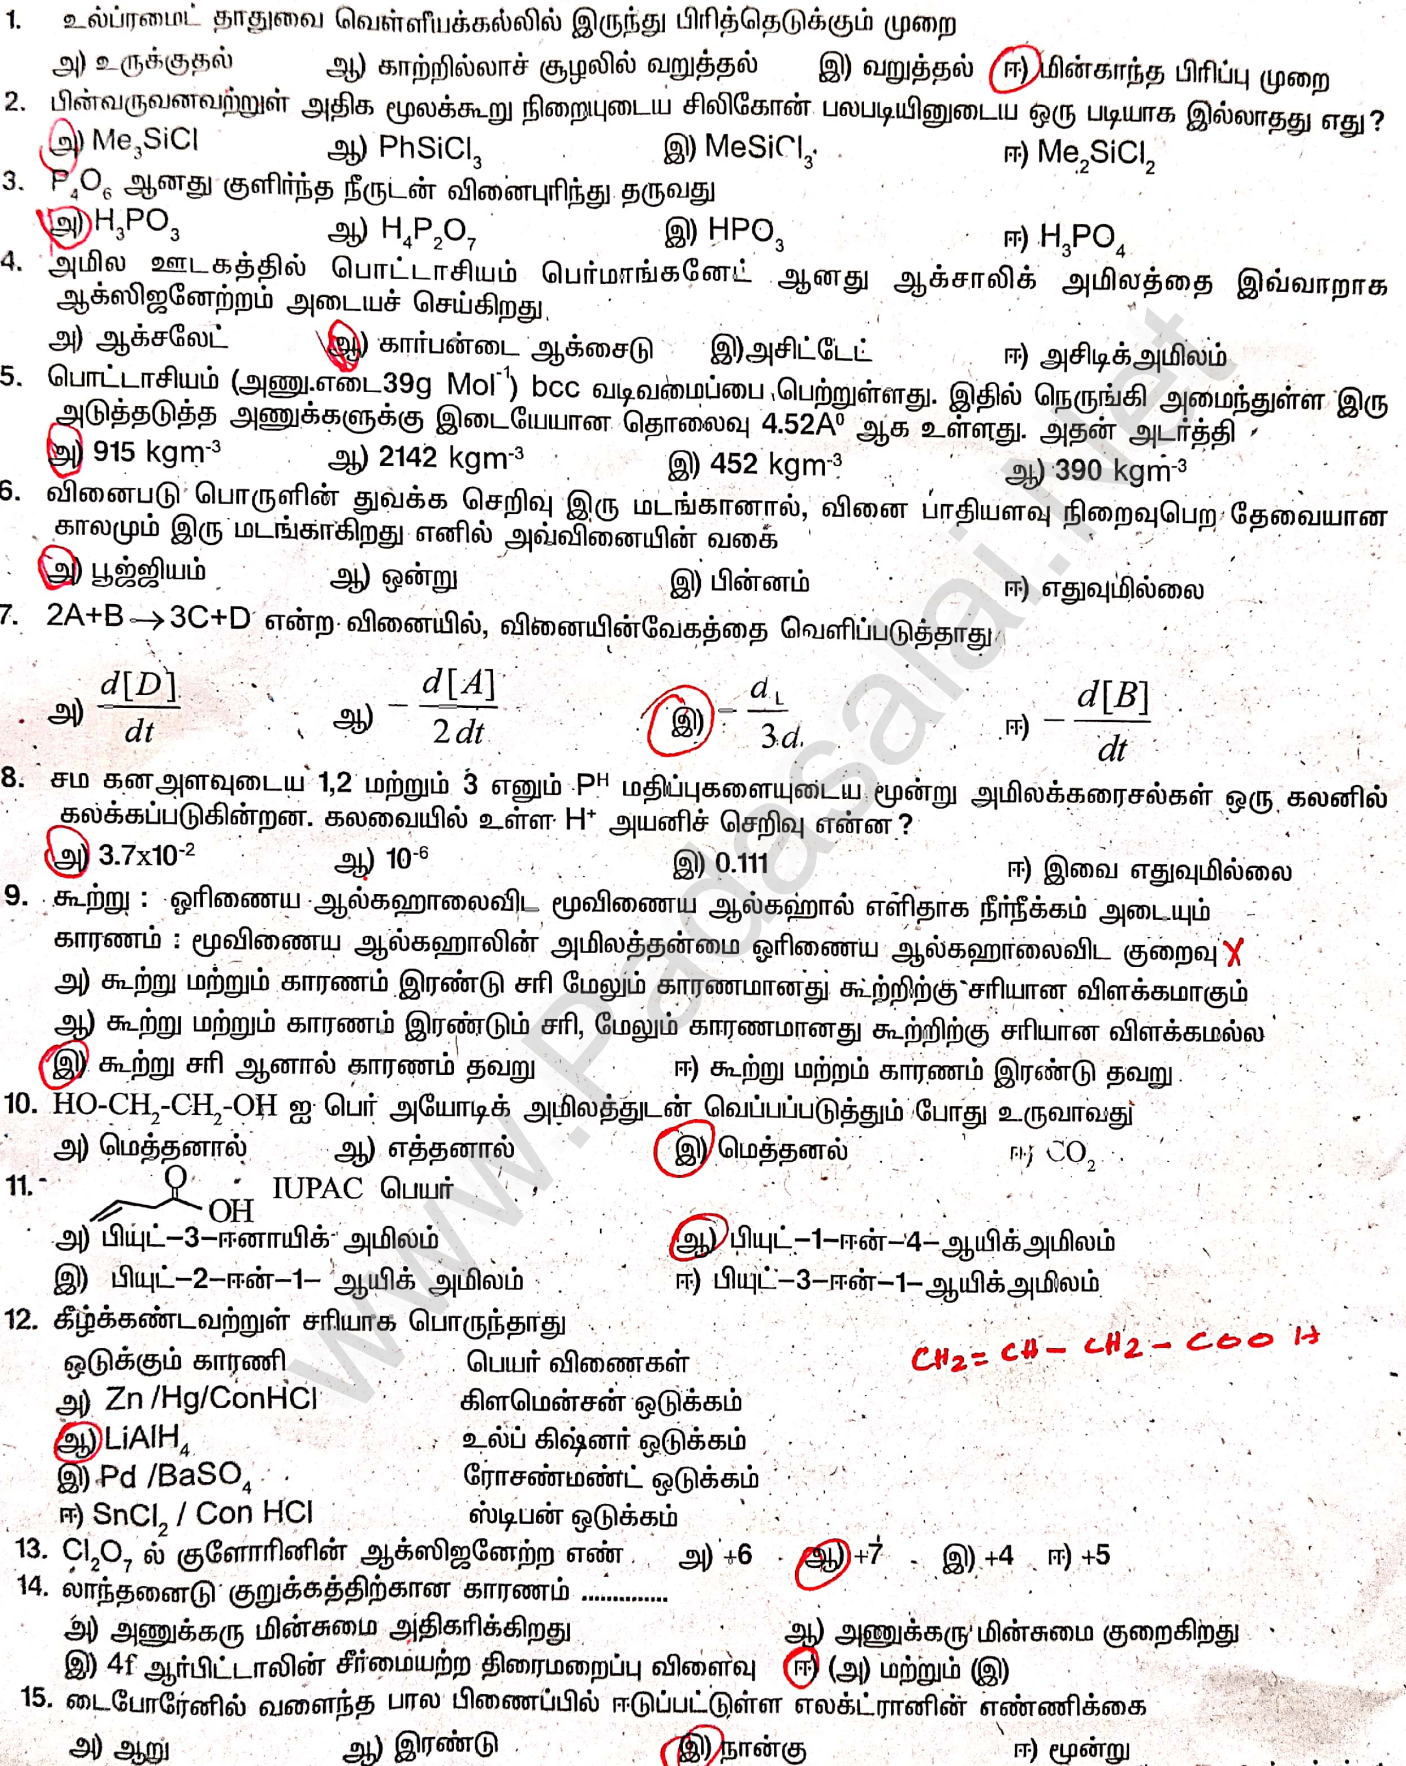 1. உல்ப்ரமைட் தாதுவை வெள்ளீயக்கல்லில் இருந்து பிரித்தெடுக்கும் முறை
அ) உருக்குதல் ஆ) காற்றில்லாச் சூழலில் வறுத்தல் இ) வறுத்தல் ஈ) மின்காந்த பிரிப்பு முறை
2. பின்வருவனவற்றுள் அதிக மூலக்கூறு நிறையுடைய சிலிகோன் பலபடியினுடைய ஒரு படியாக இல்லாதது எது?
அ) Me₃SiCl ஆ) PhSiCl₃ இ) MeSiCl₃ ஈ) Me₂SiCl₂
3. P₄O₆ ஆனது குளிர்ந்த நீருடன் வினைபுரிந்து தருவது
அ) H₃PO₃ ஆ) H₄P₂O₇ இ) HPO₃ ஈ) H₃PO₄
4. அமில ஊடகத்தில் பொட்டாசியம் பெர்மாங்கனேட் ஆனது ஆக்சாலிக் அமிலத்தை இவ்வாறாக
ஆக்ஸிஜனேற்றம் அடையச் செய்கிறது.
அ) ஆக்சலேட் ஆ) கார்பன்டை ஆக்சைடு இ)அசிட்டேட் ஈ) அசிடிக்அமிலம்
5. பொட்டாசியம் (அணு.எடை39g Mol⁻¹) bcc வடிவமைப்பை பெற்றுள்ளது. இதில் நெருங்கி அமைந்துள்ள இரு
அடுத்தடுத்த அணுக்களுக்கு இடையேயான தொலைவு 4.52A⁰ ஆக உள்ளது. அதன் அடர்த்தி
அ) 915 kgm⁻³ ஆ) 2142 kgm⁻³ இ) 452 kgm⁻³ ஆ) 390 kgm⁻³
6. வினைபடு பொருளின் துவக்க செறிவு இரு மடங்கானால், வினை பாதியளவு நிறைவுபெற தேவையான
காலமும் இரு மடங்காகிறது எனில் அவ்வினையின் வகை
அ) பூஜ்ஜியம் ஆ) ஒன்று இ) பின்னம் ஈ) எதுவுமில்லை
7. 2A+B→3C+D என்ற வினையில், வினையின்வேகத்தை வெளிப்படுத்தாது
அ) d[D]/dt ஆ) −d[A]/2dt இ) −d/3d ஈ) −d[B]/dt
8. சம கனஅளவுடைய 1,2 மற்றும் 3 எனும் Pᴴ மதிப்புகளையுடைய மூன்று அமிலக்கரைசல்கள் ஒரு கலனில்
கலக்கப்படுகின்றன. கலவையில் உள்ள H⁺ அயனிச் செறிவு என்ன?
அ) 3.7x10⁻² ஆ) 10⁻⁶ இ) 0.111 ஈ) இவை எதுவுமில்லை
9. கூற்று : ஓரிணைய ஆல்கஹாலைவிட மூவிணைய ஆல்கஹால் எளிதாக நீர்நீக்கம் அடையும்
காரணம் : மூவிணைய ஆல்கஹாலின் அமிலத்தன்மை ஓரிணைய ஆல்கஹாலைவிட குறைவு X
அ) கூற்று மற்றும் காரணம் இரண்டு சரி மேலும் காரணமானது கூற்றிற்கு சரியான விளக்கமாகும்
ஆ) கூற்று மற்றும் காரணம் இரண்டும் சரி, மேலும் காரணமானது கூற்றிற்கு சரியான விளக்கமல்ல
இ) கூற்று சரி ஆனால் காரணம் தவறு ஈ) கூற்று மற்றம் காரணம் இரண்டு தவறு
10. HO-CH₂-CH₂-OH ஐ பெர் அயோடிக் அமிலத்துடன் வெப்பப்படுத்தும் போது உருவாவது
அ) மெத்தனால் ஆ) எத்தனால் இ) மெத்தனல் ஈ) CO₂
11. O OH IUPAC பெயர்
அ) பியுட்–3–ஈனாயிக் அமிலம் ஆ) பியுட்–1–ஈன்–4–ஆயிக்அமிலம்
இ) பியுட்–2–ஈன்–1– ஆயிக் அமிலம் ஈ) பியுட்–3–ஈன்–1–ஆயிக்அமிலம்
12. கீழ்க்கண்டவற்றுள் சரியாக பொருந்தாது
CH2 = CH – CH2 – COOH
ஒடுக்கும் காரணி பெயர் விணைகள்
அ) Zn /Hg/ConHCl கிளமென்சன் ஒடுக்கம்
ஆ) LiAlH₄ உல்ப் கிஷ்னர் ஒடுக்கம்
இ) Pd /BaSO₄ ரோசண்மண்ட் ஒடுக்கம்
ஈ) SnCl₂ / Con HCl ஸ்டிபன் ஒடுக்கம்
13. Cl₂O₇ ல் குளோரினின் ஆக்ஸிஜனேற்ற எண் அ) +6 ஆ) +7 இ) +4 ஈ) +5
14. லாந்தனைடு குறுக்கத்திற்கான காரணம் ..............
அ) அணுக்கரு மின்சுமை அதிகரிக்கிறது ஆ) அணுக்கரு மின்சுமை குறைகிறது
இ) 4f ஆர்பிட்டாலின் சீர்மையற்ற திரைமறைப்பு விளைவு ஈ) (அ) மற்றும் (இ)
15. டைபோரேனில் வளைந்த பால பிணைப்பில் ஈடுபட்டுள்ள எலக்ட்ரானின் எண்ணிக்கை
அ) ஆறு ஆ) இரண்டு இ) நான்கு ஈ) மூன்று
www.Padasalai.Net